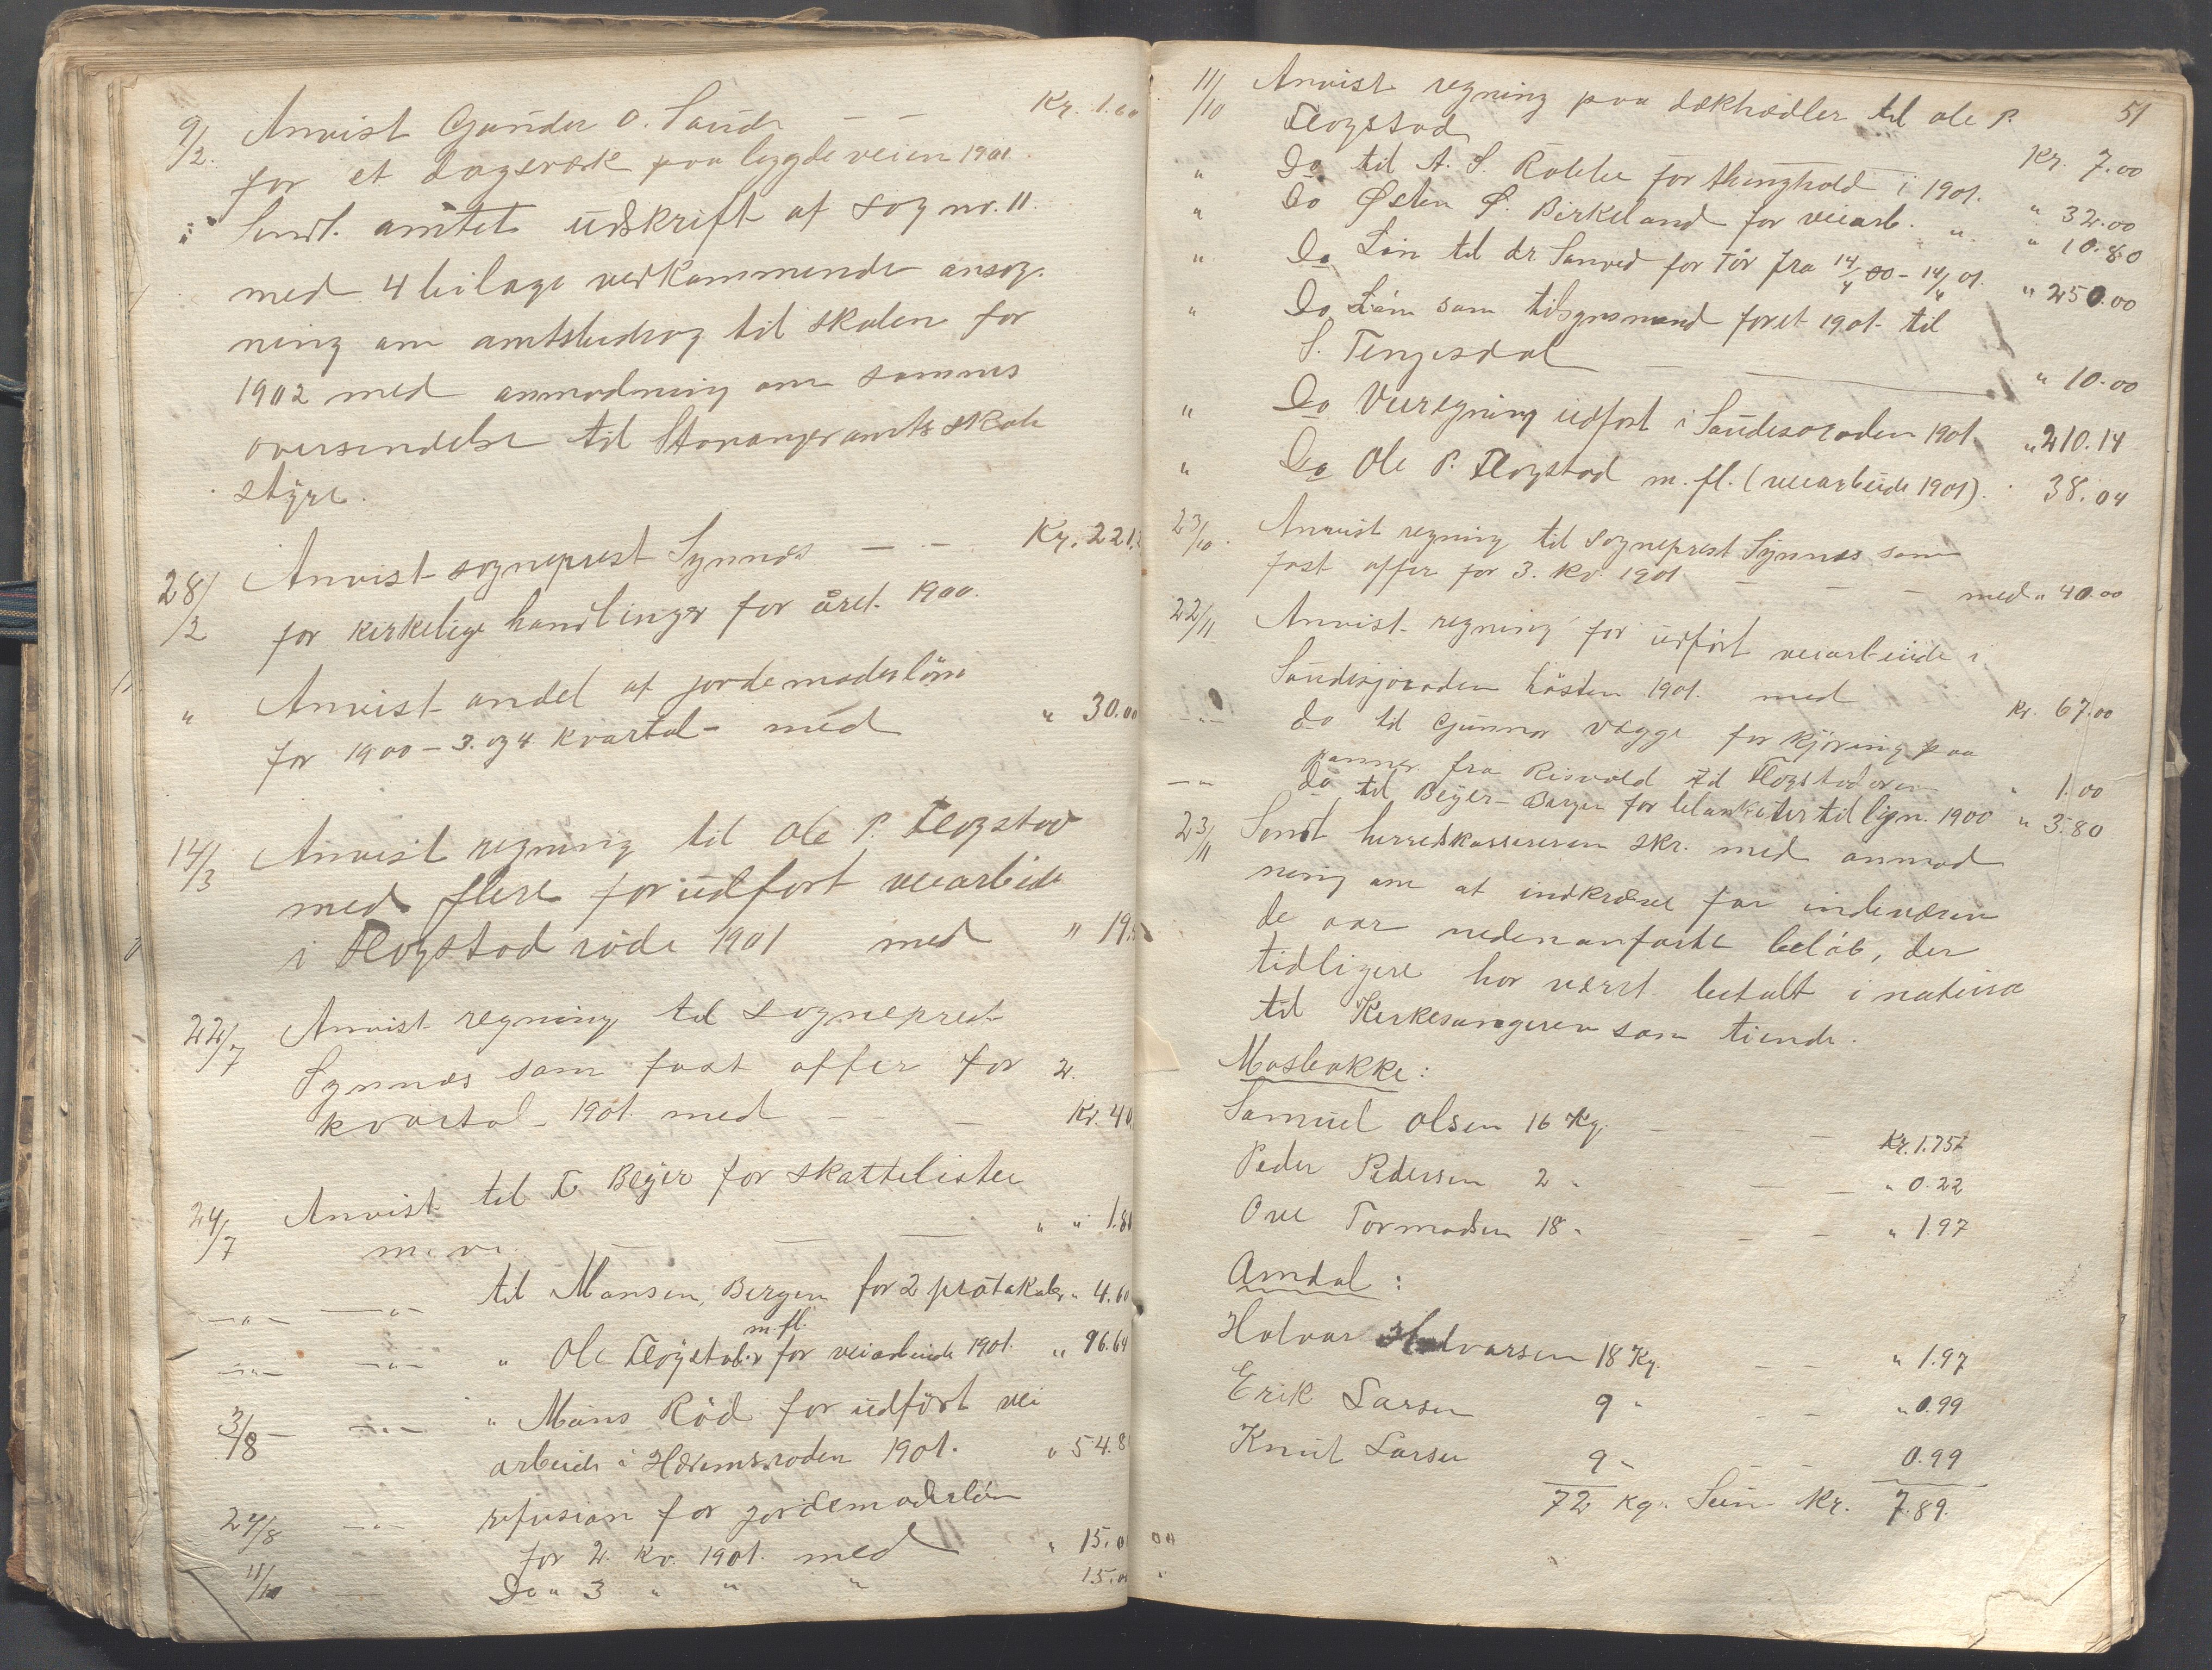 9/2. Anvist Gunder O. Sande — — Kr. 1.60
for et dagsverk paa bygdeveien 1901.
" Sendt amtet udskrift af sog nr. 11.
med 4 bilage vedkommende ansøg-
ning om amtsbidrag til skolen for
1902 med anmodning om sammes
oversendelse til Stavanger amts skole
styre.
28/2 Anvist sogneprest Synnes — — Kr. 221,
for kirkelige handlinger for året 1900.
" Anvist andel af jordemoderløn
for 1900 – 3. og 4 kvartal – med " 30.00
14/3 Anvist regning til Ole P. Fløgstad
med flere for udført veiarbeide
i Fløgstad rode 1901 med " 19.
22/7 Anvist regning til sogneprest
Synnes som fast offer for 2.
kvartal 1901 med — — Kr. 40
24/7 Anvist til F. Beyer for skattelister
m. v. — — — " " 1.80
—"— " til Monsen, Bergen for 2 protokoler " 4.60
m. fl.
—"— —"— " Ole Fløgstad for veiarbeide 1901. " 96.64
3/8 —"— " Måns Röd for udført vei
arbeide i Hæremsroden 1901. " 54.8
24/8 —"— refusion for jordemoderløn
for 2. kv. 1901. med " 15.0
11/10 — Do " 3 " " " 15.00
51
11/10 Anvist regning paa dækhædler til Ole P.
Fløgstad Kr. 7.00
" Do til A. S. Rabbe for thinghold i 1901. " 32.00
" Do Østen Ø. Birkeland for veiarb. " " 10.80
" Do Løn til dr. Sanved for Tør fra 14/4 00 – 14/4 01. " 250.00
" Do Løn som tilsynsmand foret 1901 til
S. Tengesdal — — " 10.00
" Do Veiregning udført i Saudesøroden 1901 " 210.14
" Do Ole P. Fløgstad m. fl. (veiarbeide 1901). " 38.04
23/10. Anvist regning til sogneprest Synnes som
fast offer for 3. kv. 1901 — — — med " 40.00
22/11 Anvist regning for udført veiarbeide i
Saudesjøroden høsten 1901. med Kr. 67.00
—"— do til Gunnar Vægge for kjøring paa
fra Risvold til Fløgstad " 1.00
—"— do til Beyer – Bergen for blanketter til lign. 1900 " 3.80
23/11 Sendt herredskassereren skr. med anmod
ning om at indkræve for indeværen
de aar nedenanførte beløb, der
tidligere har været betalt i natura
til Kirkesangeren som tiende.
Mosbakke:
Samuel Olsen 16 Kg. — — — Kr. 1.75
Peder Pedersen 2 " — — " 0.22
Ove Tormodsen 18 " — — — " 1.97
Amdal:
Halvar Halvarsen 18 Kg. — — " 1.97
Erik Larsen 9 " — — " 0.99
Knut Larsen 9 " — — 0.99
72 kg. Sum Kr. 7.89.